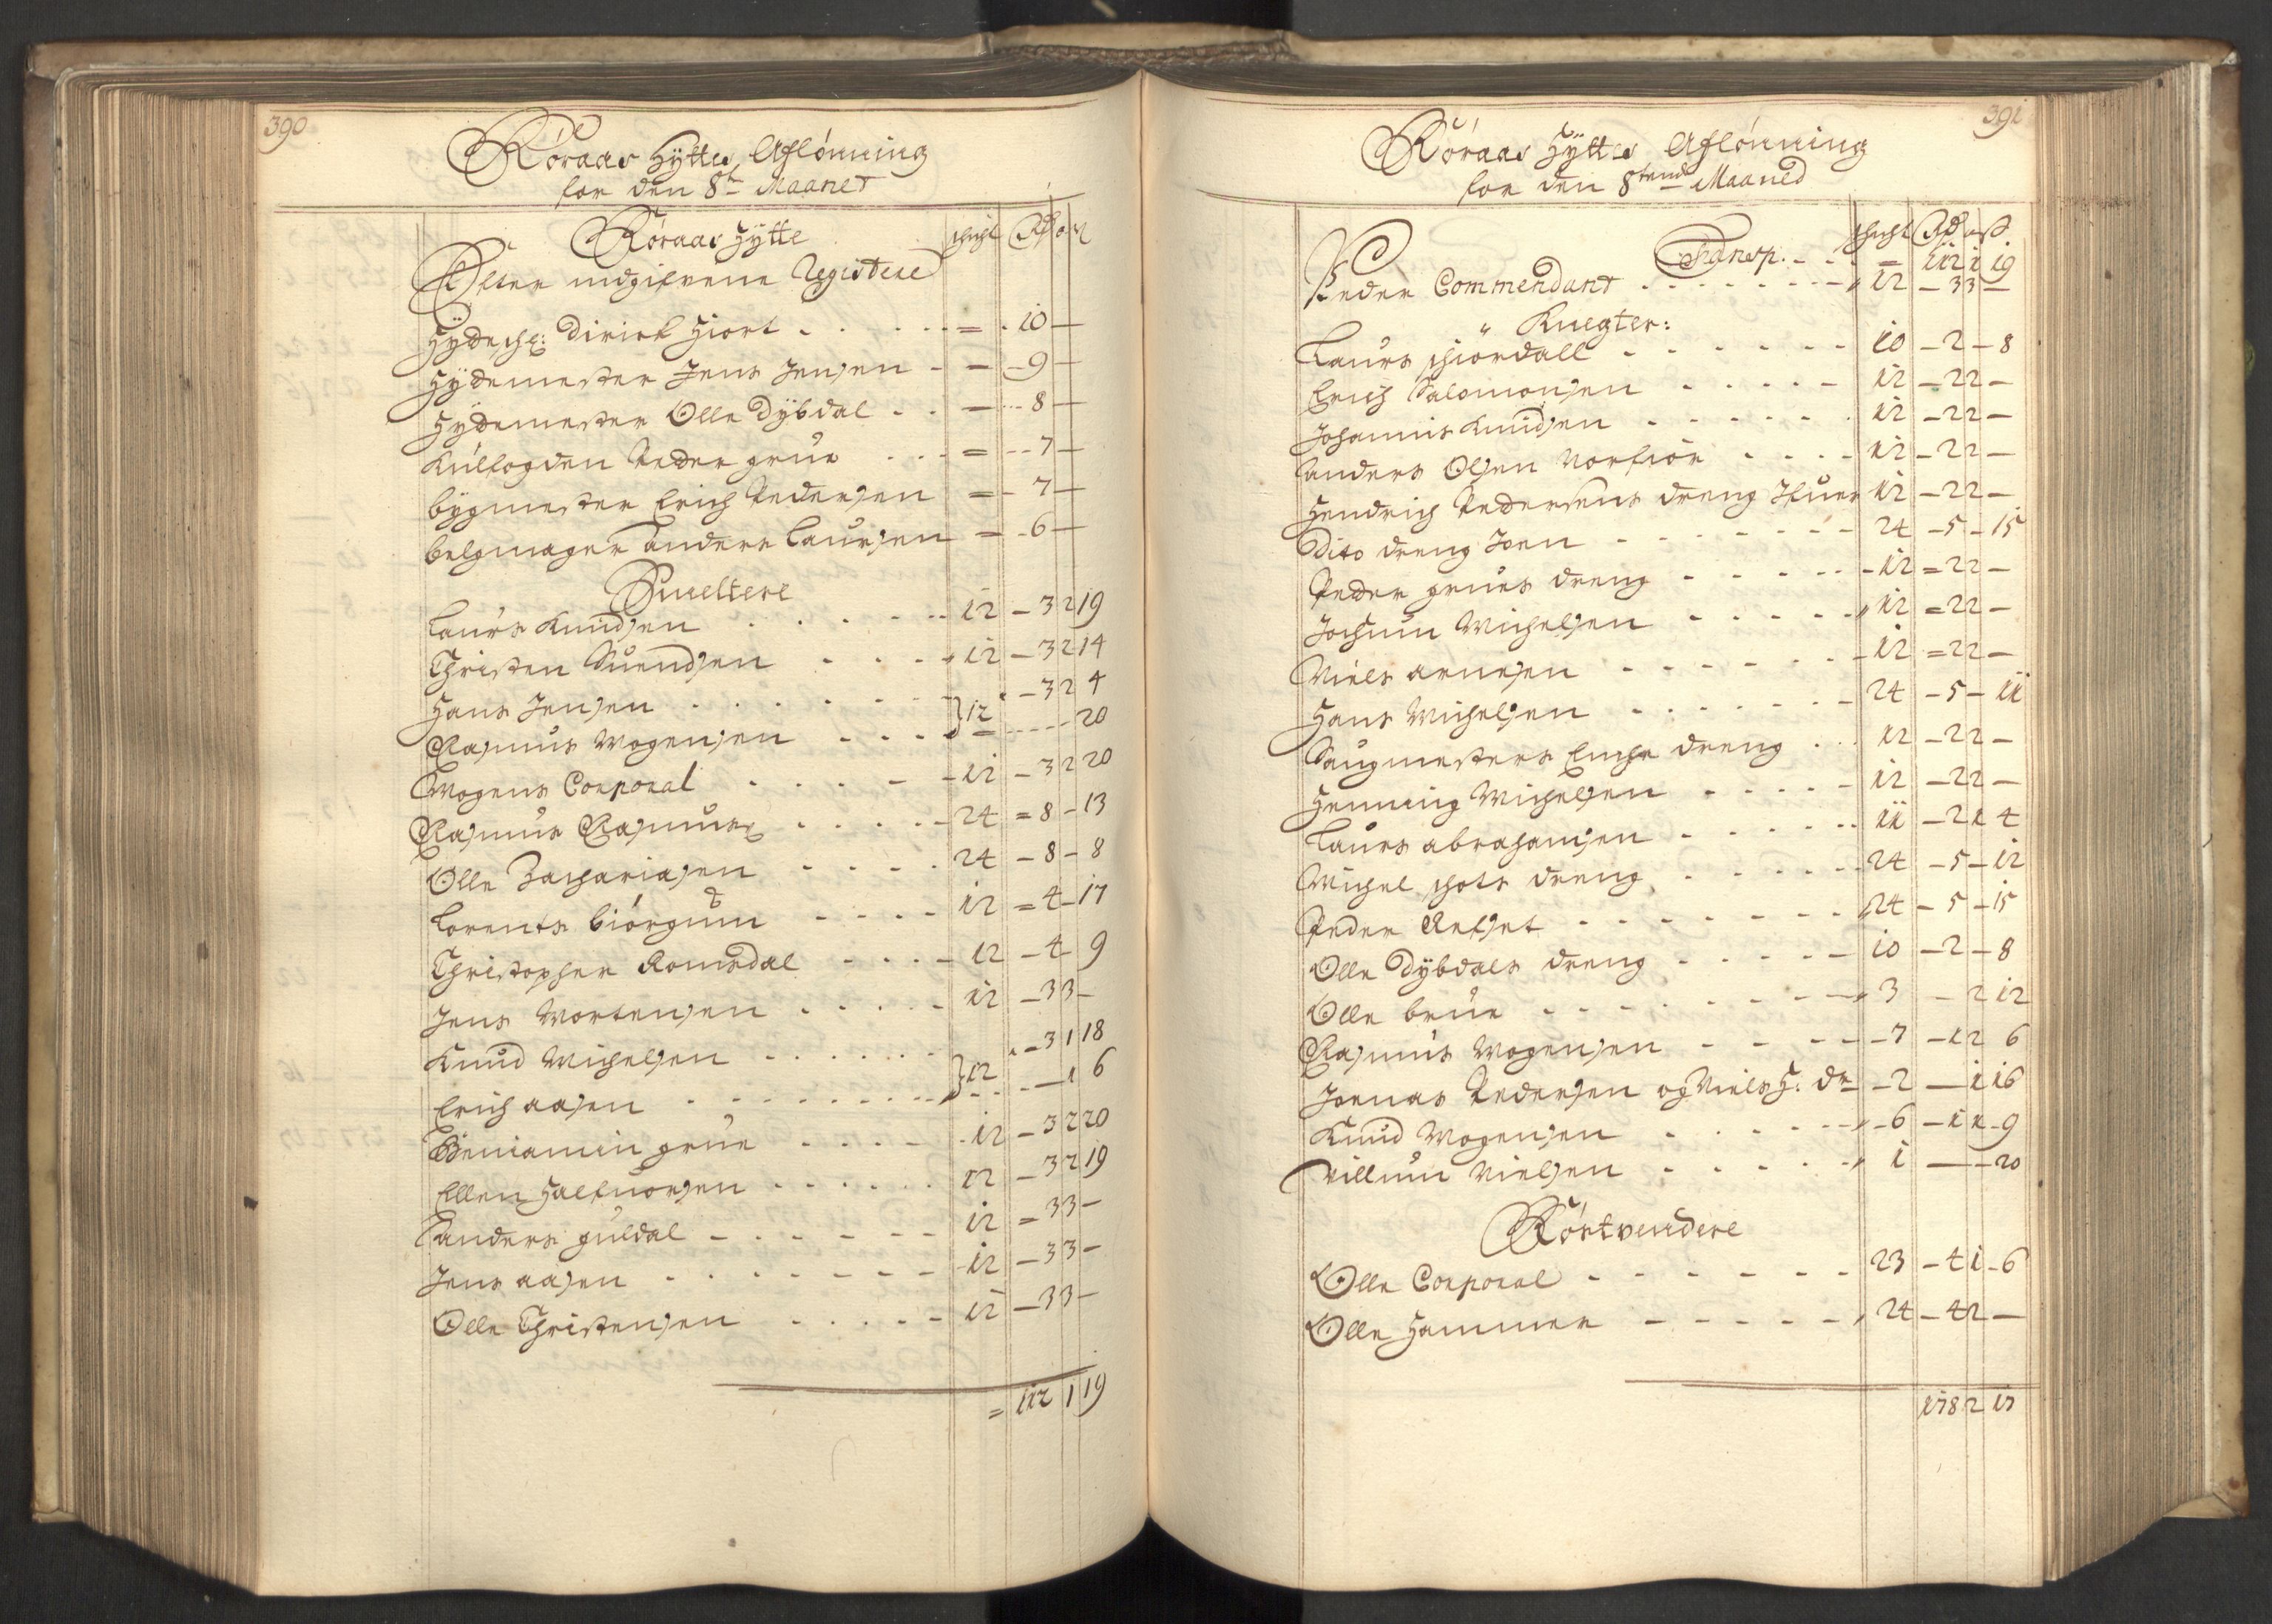 390
Röraas Hÿttes Aflönning
for den 8de Maanet
Röraas Hÿtte schicht Rdr ort s
Efter indgifvene Registere
Hÿdesch: Dirick Hiort = 10 —
Hÿdemester Jens Jensen = 9 —
Hÿdemester Olle Dÿbdal — 8 —
Kulfogden Peder grue = 7 —
bÿgmester Erich Pedersen = 7 —
belgmager Anders Laursen = 6 —
Smeltere
Laurs Knudsen 12 — 3 2 19
Christen Suendsen 12 — 3 2 14
Hans Jensen } 12 — 3 2 4
Rasmus Mogensen — 20
Mogens Corporal 12 — 3 2 20
Rasmus Rasmus: 24 = 8 — 13
Olle Zachariasen 24 — 8 — 8
Lorents biörgum 12 = 4 — 17
Christopher Romsdal 12 — 4 9
Jens Mortensen 12 — 3 3 —
Knud Michelsen } 12 — 3 1 18
Erich aasen — 1 6
Beniamin grue 12 — 3 2 20
Ellen Halfuorsen 12 — 3 2 19
Anders guldal 12 = 3 3 —
Jens aasen 12 — 3 3 —
Olle Christensen 12 — 3 3 —
= 112 1 19
391
Röraas Hÿttes Aflönning
for den 8tende Maaned
schicht Rdr ort s
Transp. — 112 1 19
Peder Commendant 12 — 3 3 —
Knegter:
Laurs schiordall 10 — 2 — 8
Erich Salomonsen 12 — 2 2 —
Johannis Knudsen 12 — 2 2 —
Anders Olsen Norfiör 12 — 2 2 —
Hendrich Pedersens dreng Ifuer 12 — 2 2 —
Dito dreng Joen 24 — 5 — 15
Peder grues dreng 12 = 2 2 —
Jochum Michelsen 12 = 2 2 —
Niels arnesen 12 = 2 2 —
Hans Michelsen 24 — 5 — 11
Saugmesters Enche dreng 12 — 2 2 —
Henning Michelsen 12 — 2 2 —
Laurs abrahamsen 11 — 2 1 4
Michel schots dreng 24 — 5 — 12
Peder 24 — 5 — 15
Olle Dÿbdals dreng 10 — 2 — 8
Olle brun 3 — 2 12
Rasmus Mogensen 7 — 1 2 6
Joenas Pedersen og Niels H: dr 2 — 1 16
Knud Mogensen 6 — 1 1 9
Villum Nielsen 1 — — 20
Röstvendere
Olle Corporal 23 — 4 1 — 6
Olle Hammer 24 — 4 2 —
178 2 17